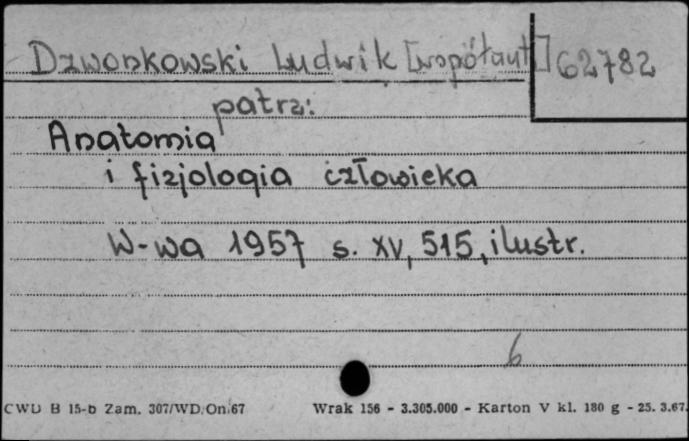 Dzwonkowski Ludwik [współaut.] 62782
patrz:
Anatomia
i fizjologia człowieka
W-wa 1957 s. XV, 515, ilustr.
6
CWD B 15-b Zam. 307/WD/On/67 Wrak 156 - 3.305.000 - Karton V kl. 180 g - 25. 3.67.